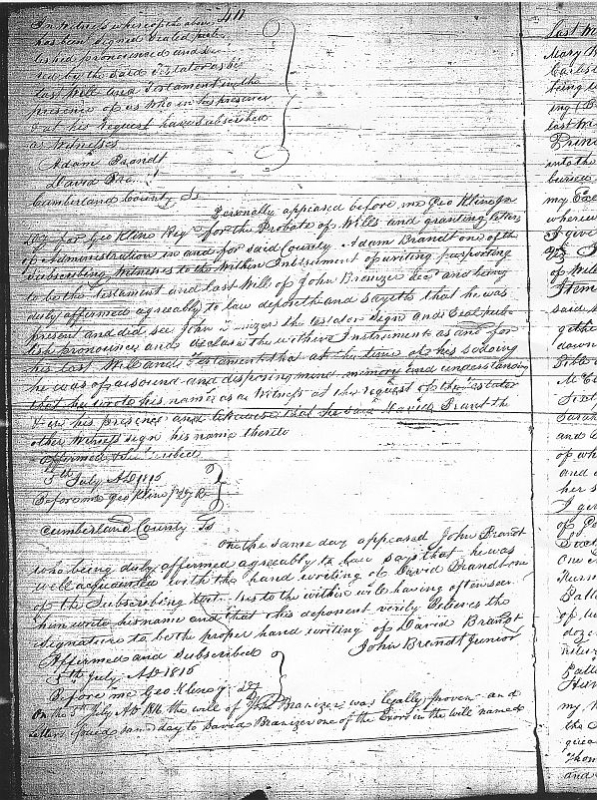 411
In witness whereof the above
has been signed sealed pub
lished pronounced and de
red by the said Testator as his
last will and Testament in the
presence of us who in his presence
& at his request have subscribed
as witnesses
Adam Brandt
David
Cumberland County Ss
Personally appeared before me Geo Kline Jr
Dy for Geo Kline Regr for the Probate of Wills and granting letters
of Administration in and for said County Adam Brandt one of the
subscribing Witnesses to the Within Instrument of writing purporting
to be the testament and last Will of John Branizer decd and being
duly affirmed agreeably to law deposeth and sayeth that he was
present and did see John the testator sign and Seal pub
lish pronounce and declare the within Instrument as and for
his last Will and Testament that at the time of his so doing
he was of a sound and disposing mind memory and understanding
that he wrote his name as a Witness at the request of the testator
& in his presence and likewise that he saw David Brandt the
other Witness sign his name thereto
Affirmed &
5th July AD 1816
Before me Geo Kline Jr Dy R
Cumberland County Ss
On the same day appeared John Brandt
who being duly affirmed agreeably to law says that he was
well acquainted with the hand writing of David Brandt one
of the Subscribing to the within will having often seen
him write his name and that this deponent verily believes the
signature to be the proper hand writing of David Brandt
Affirmed and Subscribed
John Brandt Junior
5th July AD 1816
Before me Geo Kline Jr Dy
On the 5th July AD 1816 the will of John Branizer was legally proven and
letters issued same day to David Branizer one of the Exors in the will named
last
Mary
being
last
into the
buried
my
wherew
I give
of Wil
Item
said
gethe
down
and
of wh
and
her s
I give
of
One
of
doze
my
the
Thom
and